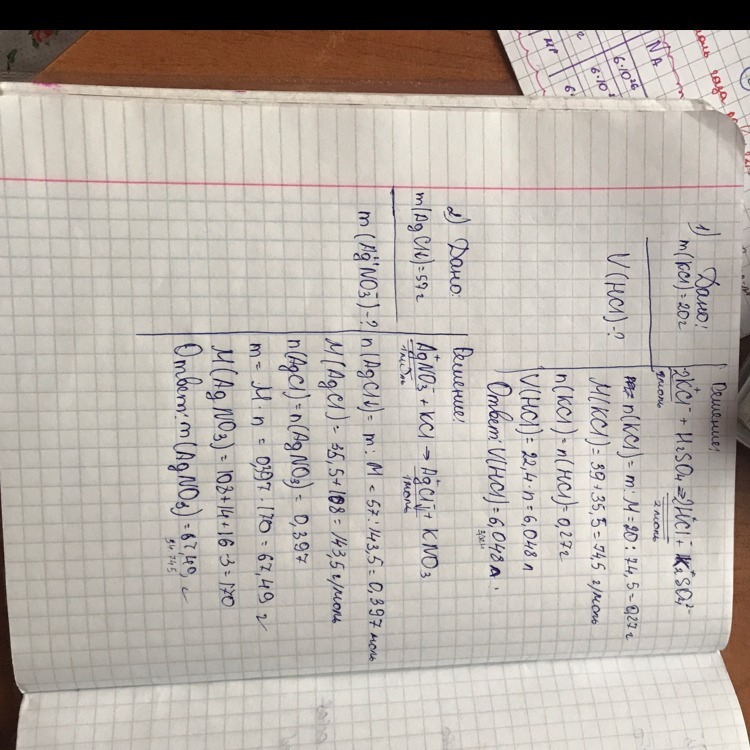 1) Дано:
m(KCl)=20г
V(HCl)-?
Решение:
2KCl + H₂SO₄ → 2HCl + K₂SO₄
2моль 2моль
n(KCl)=m:M=20:74,5=0,27г
M(KCl)=39+35,5=74,5 г/моль
n(KCl)=n(HCl)=0,27г
V(HCl)=22,4·n=6,048л
Ответ: V(HCl)=6,048л.
2) Дано:
m(AgCl↓)=57г
m(AgNO₃)-?
Решение:
AgNO₃ + KCl → AgCl↓ + KNO₃
1моль 1моль
n(AgCl↓)=m:M=57:143,5=0,397моль
M(AgCl)=35,5+108=143,5г/моль
n(AgCl)=n(AgNO₃)=0,397
m=M·n=0,397·170=67,49 г
M(AgNO₃)=108+14+16·3=170
Ответ: m(AgNO₃)=67,49 г
NA
6·10²⁶
MP
газа